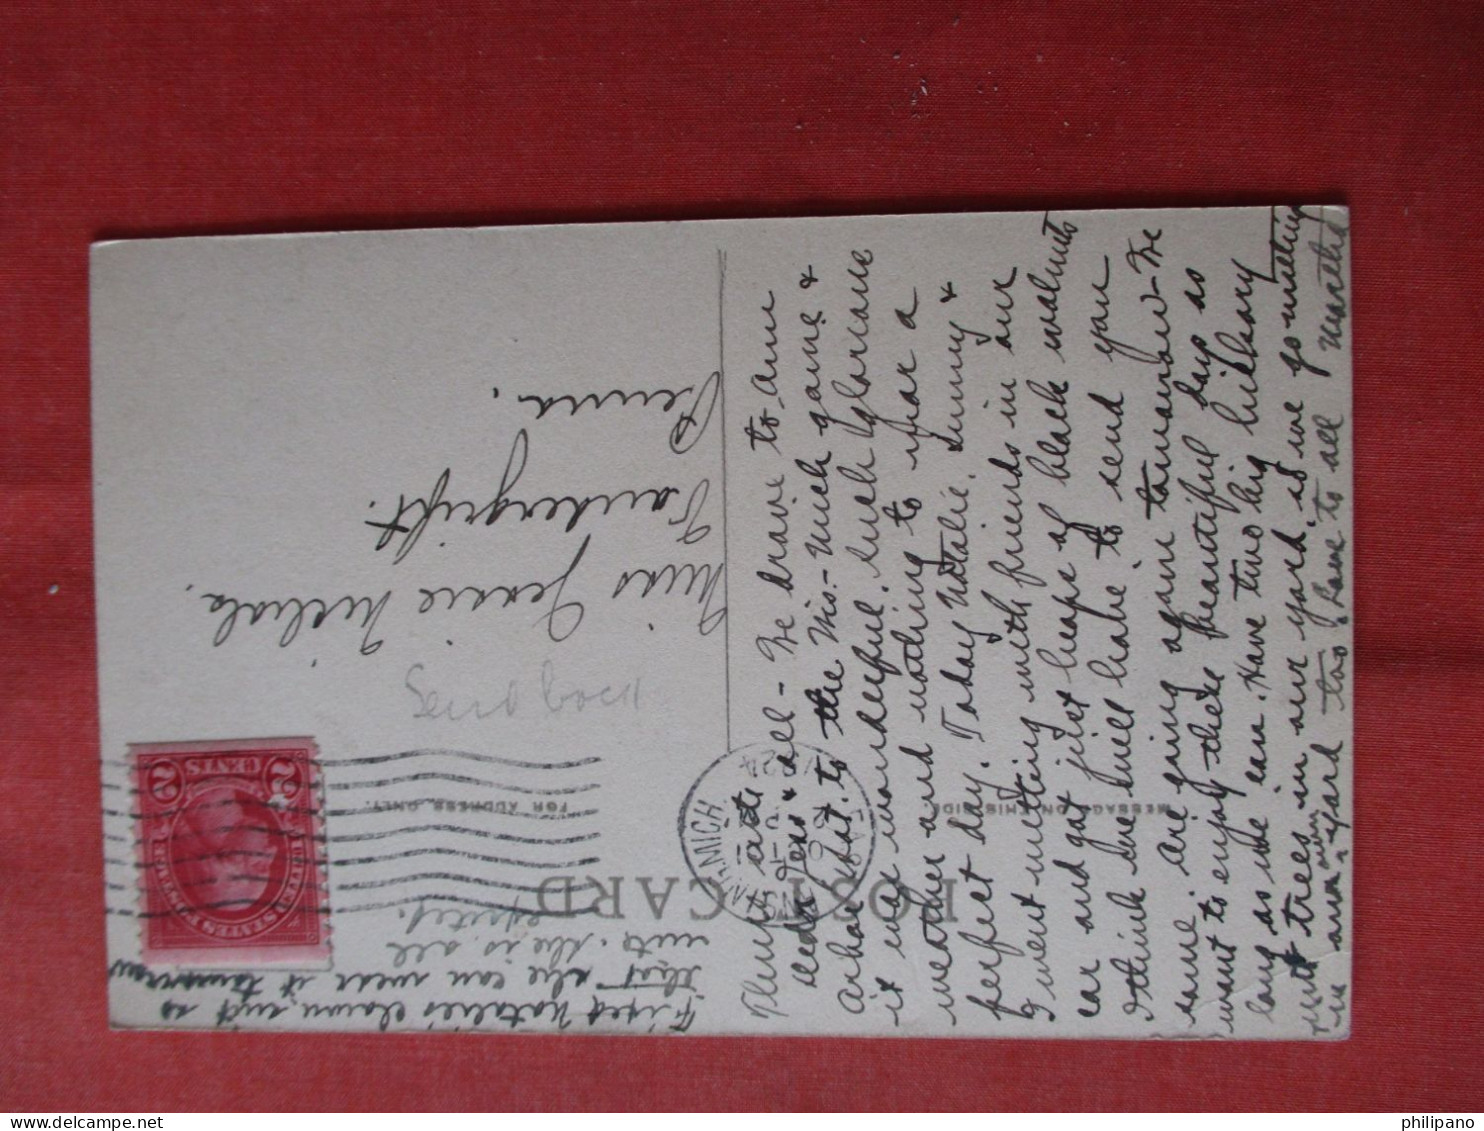 POST CARD
MESSAGE ON THIS SIDE
FOR ADDRESS ONLY.
LANSING, MICH.
OCT
1924
2 CENTS 2
UNITED STATES POSTAGE
Send back
Miss Jessie Nichols.
Vandergrift.
Penna.
We drove to Ann
Arbor & all -
to the Mis. - Much game &
it was wonderful. Such glorious
weather and nothing to mar a
perfect day. Today Natalie, Jimmy &
I went nutting with friends in our
car and got just heaps of black walnuts
I think we will have to send you
some. Are going again tomorrow - We
want to enjoy these beautiful days as
long as we can. Have two big hickory
nut trees in our yard, so we go nutting
in our own yard too. Love to all Martha
Fixed Natalie's clown suit so
that she can wear it tomorrow
nite. She is all
excited.
philipano